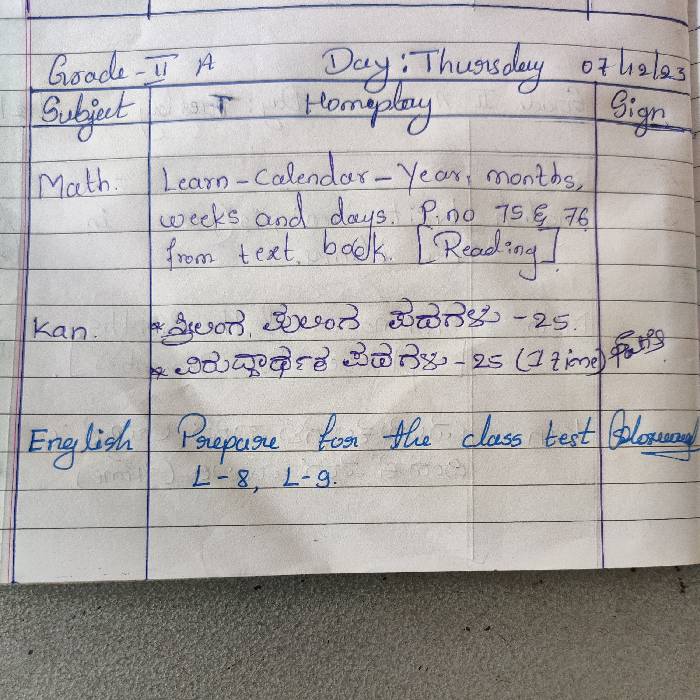 Grade - II A Day : Thursday 07/12/23
Subject Homeplay Sign
Math. Learn - Calendar - Year, months,
weeks and days. P.no 75 & 76
from text book. [Reading]
Kan. * ಸ್ತ್ರೀಲಿಂಗ, ಪುಲಿಂಗ ಪದಗಳು - 25.
* ವಿರುದ್ಧಾರ್ಥಕ ಪದಗಳು - 25 (1 time)
English Prepare for the class test
L-8, L-9.